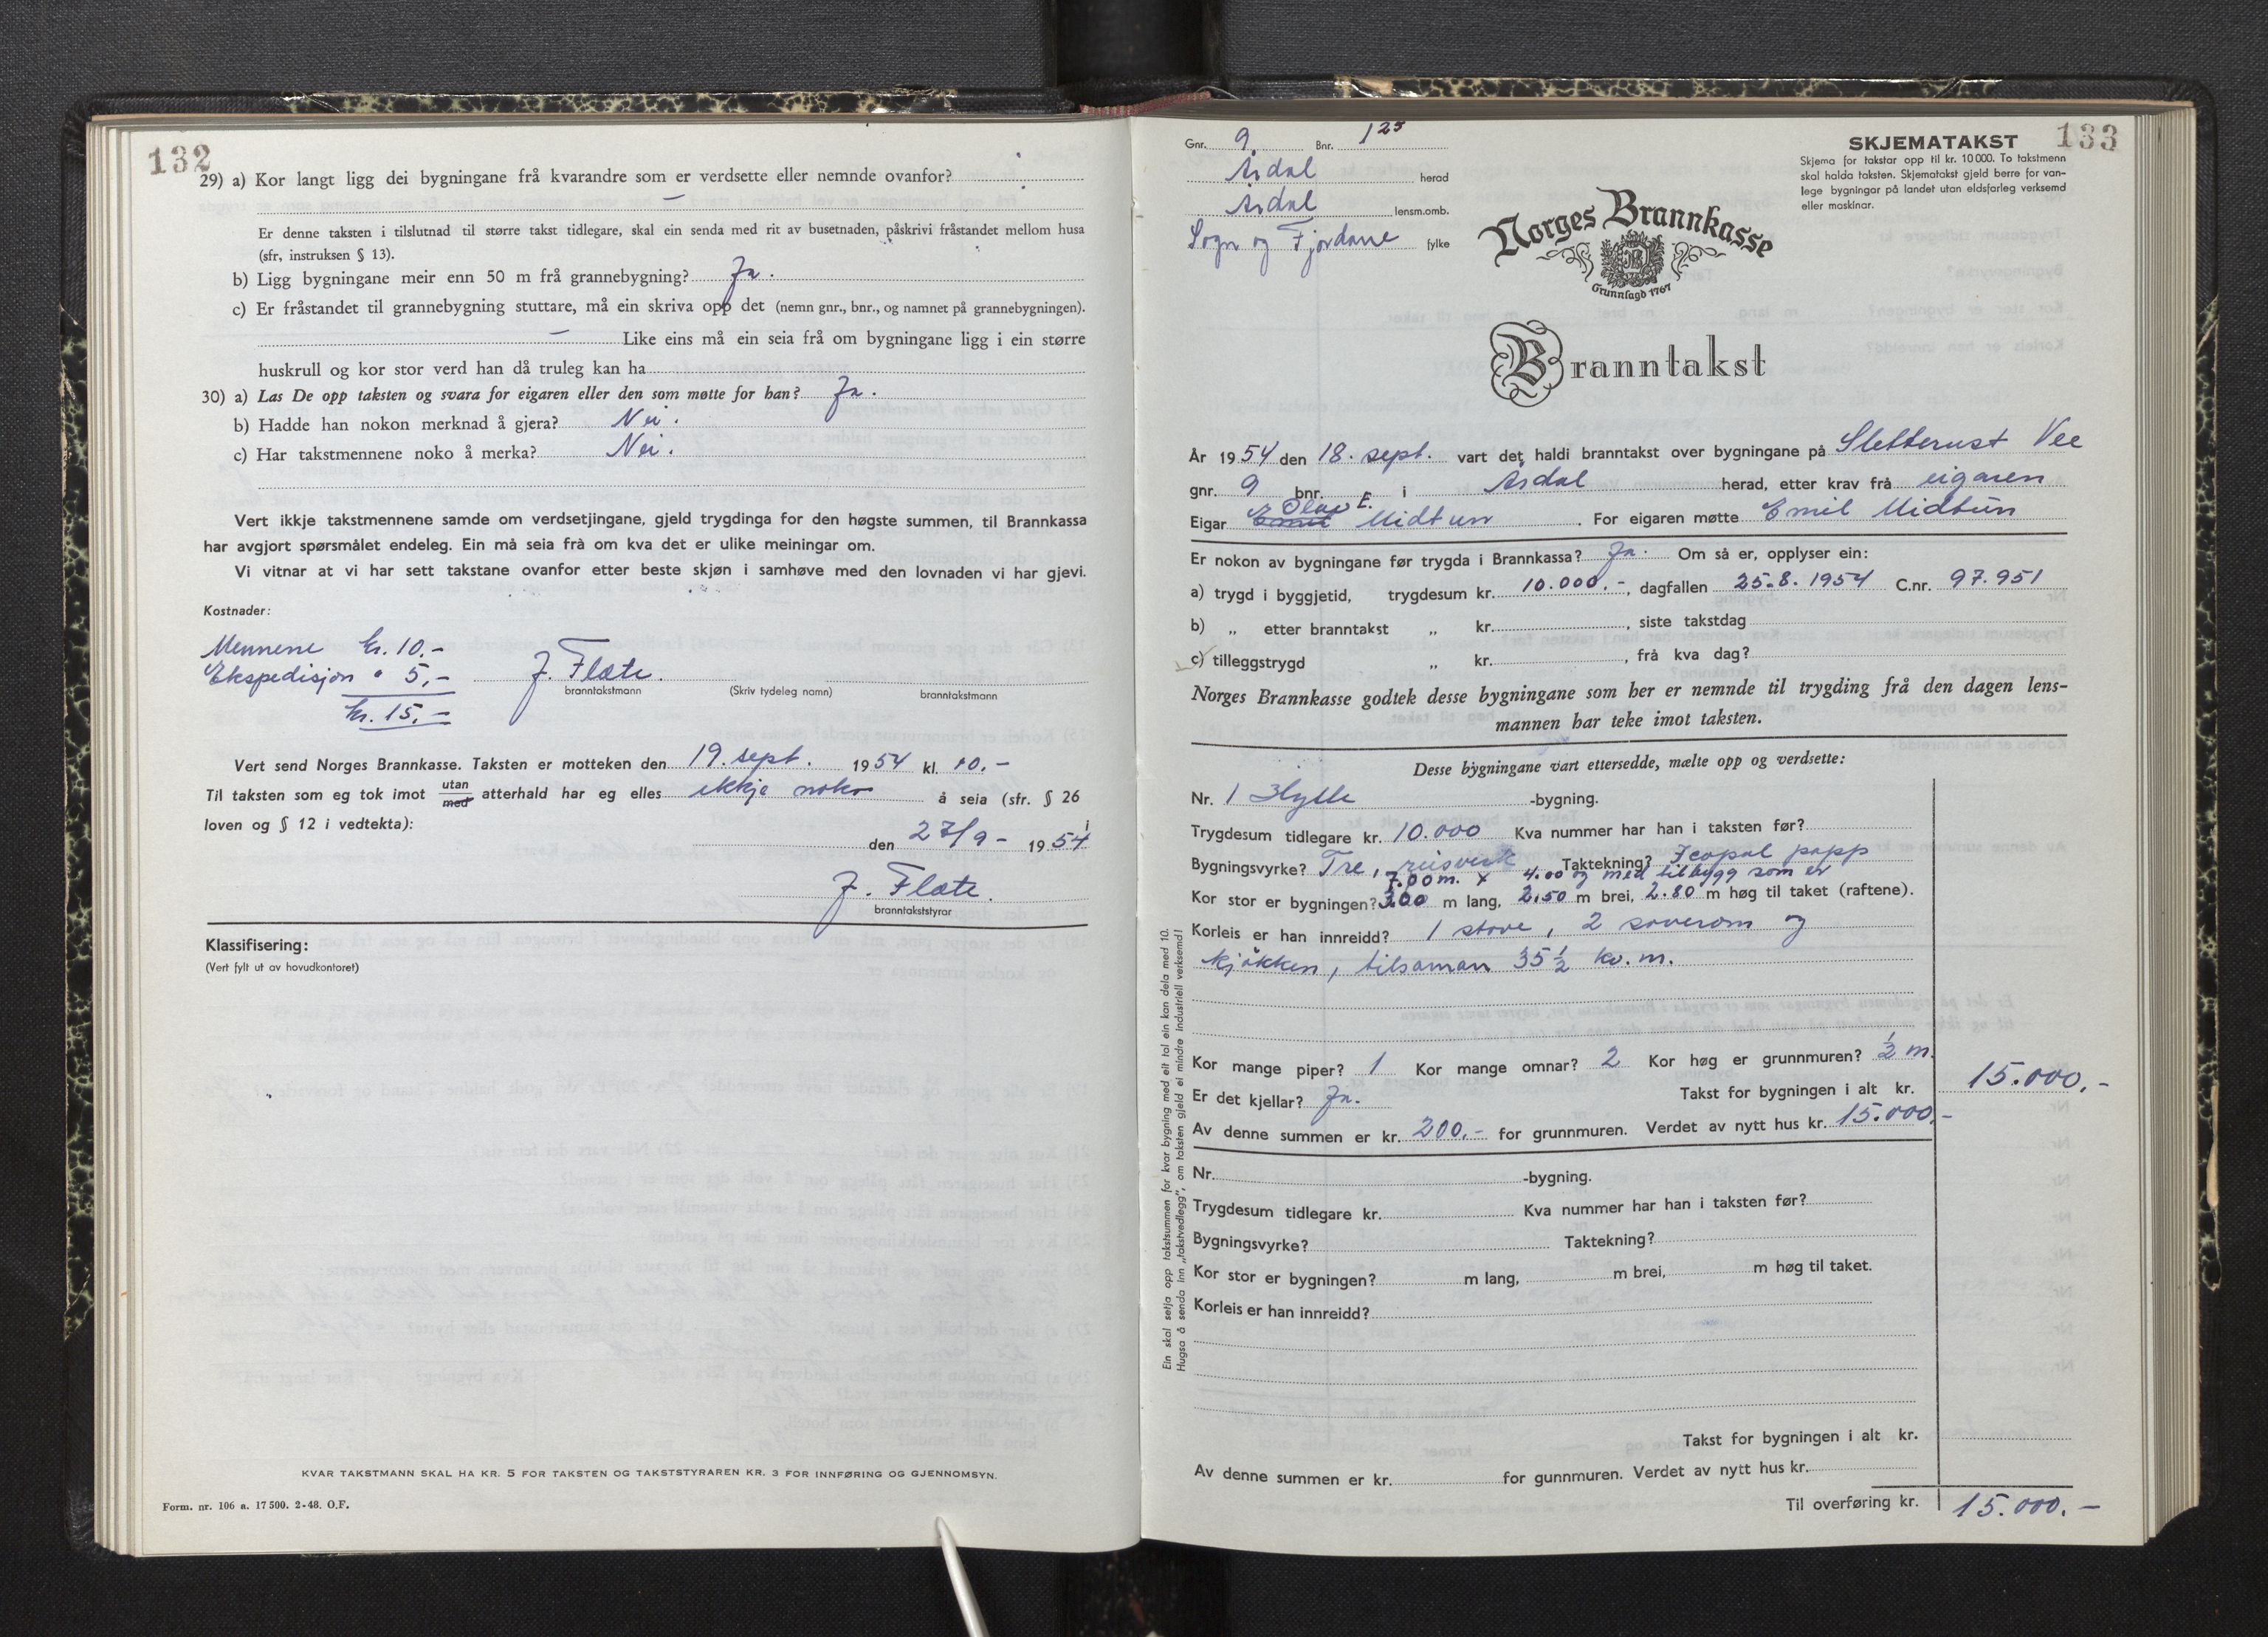 132
29) a) Kor langt ligg dei bygningane frå kvarandre som er verdsette eller nemnde ovanfor?
—
Er denne taksten i tilslutnad til større takst tidlegare, skal ein senda med rit av busetnaden, påskrivi fråstandet mellom husa
(sfr, instruksen § 13).
b) Ligg bygningane meir enn 50 m frå grannebygning? Ja.
c) Er fråstandet til grannebygning stuttare, må ein skriva opp det (nemn gnr., bnr., og namnet på grannebygningen).
— Like eins må ein seia frå om bygningane ligg i ein større
huskrull og kor stor verd han då truleg kan ha
30) a) Las De opp taksten og svara for eigaren eller den som møtte for han? Ja.
b) Hadde han nokon merknad å gjera? Nei.
c) Har takstmennene noko å merka? Nei.
Vert ikkje takstmennene samde om verdsetjingane, gjeld trygdinga for den høgste summen, til Brannkassa
har avgjort spørsmålet endeleg. Ein må seia frå om kva det er ulike meiningar om.
Vi vitnar at vi har sett takstane ovanfor etter beste skjøn i samhøve med den lovnaden vi har gjevi.
Kostnader:
Mennene kr. 10.-
Ekspedisjon " 5,-
kr. 15.-
J. Flate.
branntakstmann (Skriv tydeleg namn) branntakstmann
Vert send Norges Brannkasse. Taksten er motteken den 19. sept. 1954 kl. 10.-
Til taksten som eg tok imot utan med atterhald har eg elles ikkje noko å seia (sfr. § 26 i
loven og § 12 i vedtekta):
den 27/9 - 1954
J. Flate.
branntakststyrar
Klassifisering:
(Vert fylt ut av hovudkontoret)
KVAR TAKSTMANN SKAL HA KR. 5 FOR TAKSTEN OG TAKSTSTYRAREN KR. 3 FOR INNFØRING OG GJENNOMSYN.
Form. nr. 106 a. 17 500. 2-48. O.F.
133
Gnr. 9 Bnr. 125
Årdal herad
Årdal lensm.omb.
Sogn og Fjordane fylke
SKJEMATAKST
Skjema for takstar opp til kr. 10 000. To takstmenn
skal halda taksten. Skjematakst gjeld berre for van-
lege bygningar på landet utan eldsfarleg verksemd
eller maskinar.
Norges Brannkasse
Grunnlagd 1767
Branntakst
År 1954 den 18. sept. vart det haldi branntakst over bygningane på Sletterust Vee
gnr. 9 bnr. i Årdal herad, etter krav frå eigaren
Eigar Emil Olav E. Midtun. For eigaren møtte Emil Midtun
Er nokon av bygningane før trygda i Brannkassa? Ja. Om så er, opplyser ein:
a) trygd i byggjetid, trygdesum kr. 10.000.-, dagfallen 25.8.1954 C.nr. 97.951
b) „ etter branntakst „ kr. , siste takstdag
c) tilleggstrygd „ kr. , frå kva dag?
Norges Brannkasse godtek desse bygningane som her er nemnde til trygding frå den dagen lens-
mannen har teke imot taksten.
Desse bygningane vart ettersedde, mælte opp og verdsette:
Nr. 1 Hytte -bygning.
Trygdesum tidlegare kr. 10.000 Kva nummer har han i taksten før?
Bygningsvyrke? Tre, reisverk Taktekning? Icopal papp
7.00 m. x 4.00 og med tilbygg som er
Kor stor er bygningen? 3.00 m lang, 2.50 m brei, 2.80 m høg til taket (raftene).
Korleis er han innreidd? 1 stove, 2 soverom og
kjøkken, tilsaman 35 ½ kv. m.
Kor mange piper? 1 Kor mange omnar? 2 Kor høg er grunnmuren? ½ m.
Er det kjellar? Ja. Takst for bygningen i alt kr. 15.000,-
Av denne summen er kr. 200.- for grunnmuren. Verdet av nytt hus kr. 15.000,-
Nr. -bygning.
Trygdesum tidlegare kr. Kva nummer har han i taksten før?
Bygningsvyrke? Taktekning?
Kor stor er bygningen? m lang, m brei, m høg til taket.
Korleis er han innreidd?
Takst for bygningen i alt kr.
Av denne summen er kr. for gunnmuren. Verdet av nytt hus kr.
Til overføring kr. 15.000.-
Ein skal setja opp takstsummen for kvar bygning med eit tal ein kan dela med 10.
Hugsa å senda inn „takstvedlegg", om taksten gjeld ei mindre industriell verksemd!